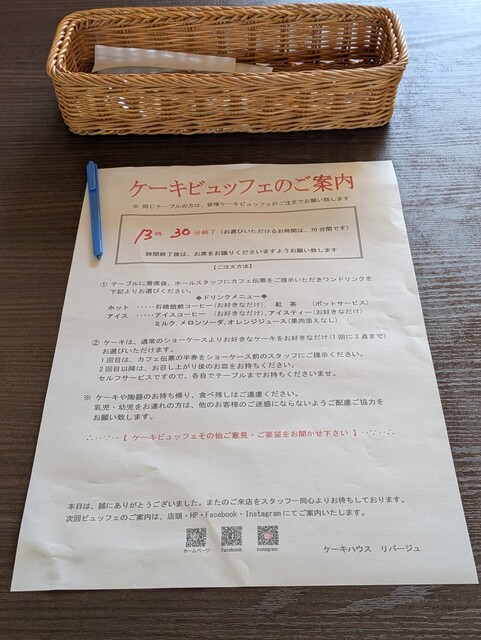 ケーキビュッフェのご案内
※ 同じテーブルの方は、皆様ケーキビュッフェのご注文でお願い致します
13時 30分終了 (お選びいただけるお時間は、70分間です)
時間終了後は、お席をお譲りくださいますようお願い致します
【ご注文方法】
① テーブルに着席後、ホールスタッフにカフェ伝票をご提示いただきワンドリンクを
下記よりお選びください。
◆ドリンクメニュー◆
ホット ・・・・・石焼焙煎コーヒー(お好きなだけ)、 紅 茶 (ポットサービス)
アイス ・・・・・アイスコーヒー (お好きなだけ)、アイスティー(お好きなだけ)
ミルク、メロンソーダ、オレンジジュース(果肉添えなし)
② ケーキは、通常のショーケースよりお好きなケーキをお好きなだけ(1回に2点まで)
お選びいただけます。
1回目は、カフェ伝票の半券をショーケース前のスタッフにご提示ください。
2回目以降は、お召し上がり後のお皿をお持ちください。
セルフサービスですので、各自でテーブルまでお持ちくださいませ。
※ ケーキや陶器のお持ち帰り、食べ残しはご遠慮ください。
乳児・幼児をお連れの方は、他のお客様のご迷惑にならないようご配慮ご協力を
お願い致します。
【 ケーキビュッフェその他ご意見・ご要望をお聞かせ下さい 】
本日は、誠にありがとうございました。またのご来店をスタッフ一同心よりお待ちしております。
次回ビュッフェのご案内は、店頭・HP・Facebook・Instagramにてご案内いたします。
ホームページ Facebook Instagram
ケーキハウス リバージュ